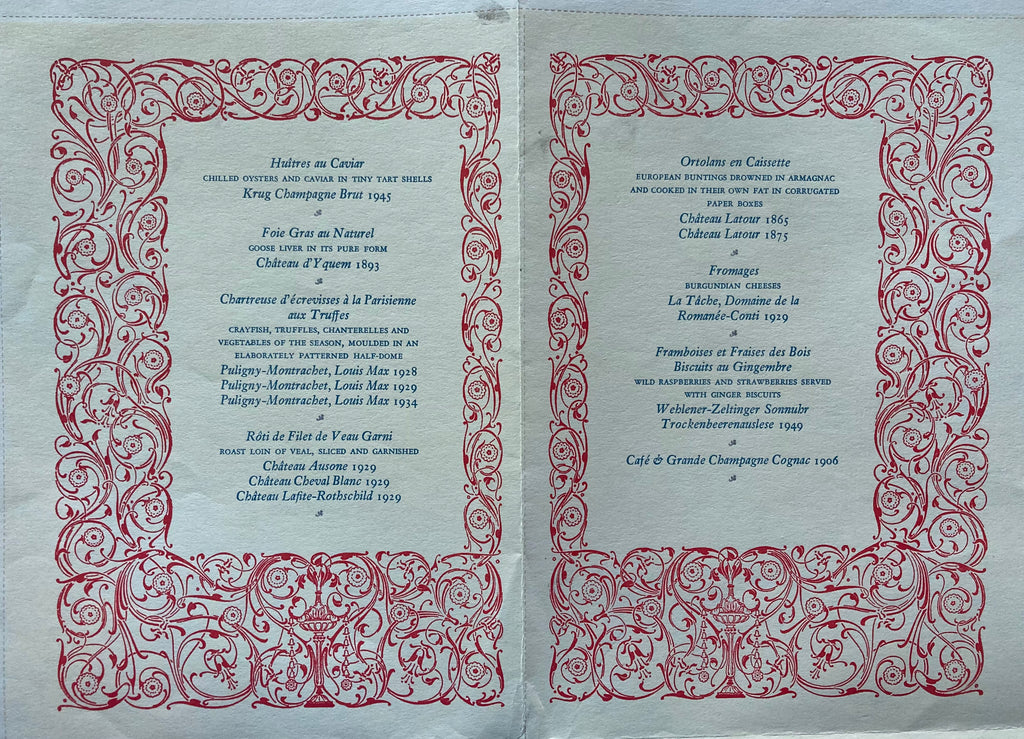 Huîtres au Caviar
CHILLED OYSTERS AND CAVIAR IN TINY TART SHELLS
Krug Champagne Brut 1945
Foie Gras au Naturel
GOOSE LIVER IN ITS PURE FORM
Château d'Yquem 1893
Chartreuse d'écrevisses à la Parisienne
aux Truffes
CRAYFISH, TRUFFLES, CHANTERELLES AND
VEGETABLES OF THE SEASON, MOULDED IN AN
ELABORATELY PATTERNED HALF-DOME
Puligny-Montrachet, Louis Max 1928
Puligny-Montrachet, Louis Max 1929
Puligny-Montrachet, Louis Max 1934
Rôti de Filet de Veau Garni
ROAST LOIN OF VEAL, SLICED AND GARNISHED
Château Ausone 1929
Château Cheval Blanc 1929
Château Lafite-Rothschild 1929
Ortolans en Caissette
EUROPEAN BUNTINGS DROWNED IN ARMAGNAC
AND COOKED IN THEIR OWN FAT IN CORRUGATED
PAPER BOXES
Château Latour 1865
Château Latour 1875
Fromages
BURGUNDIAN CHEESES
La Tâche, Domaine de la
Romanée-Conti 1929
Framboises et Fraises des Bois
Biscuits au Gingembre
WILD RASPBERRIES AND STRAWBERRIES SERVED
WITH GINGER BISCUITS
Wehlener-Zeltinger Sonnuhr
Trockenbeerenauslese 1949
Café & Grande Champagne Cognac 1906